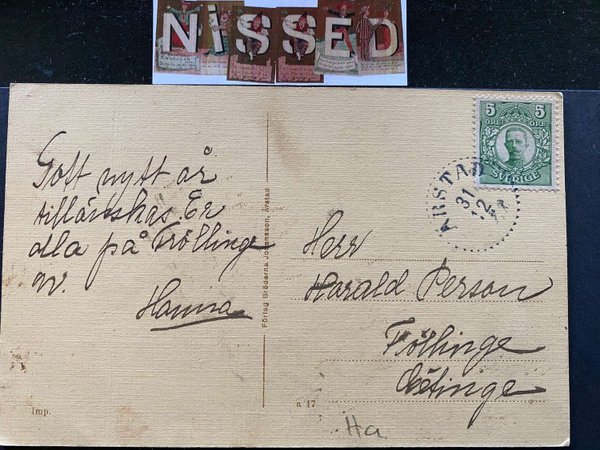 NiSSED
5 5
ÖRE ÖRE
SVERIGE
ÅRSTAD
31
12
Gott nytt år
tillönskas Er
alla på Frölling
Hanna
Herr
Harald Person
Fröllinge
Getinge
Förlag Bräserna Johansson, Årstad
Imp.
a 17
Ha